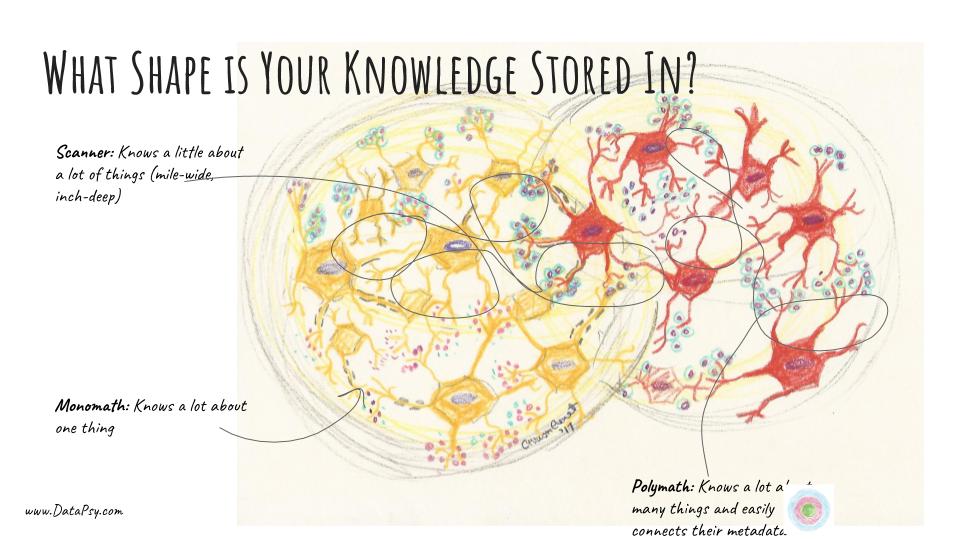 What Shape is Your Knowledge Stored In?
Scanner: Knows a little about
a lot of things (mile-wide,
inch-deep)
Monomath: Knows a lot about
one thing
'17
Polymath: Knows a lot
many things and easily
connects their metadata
www.DataPsy.com